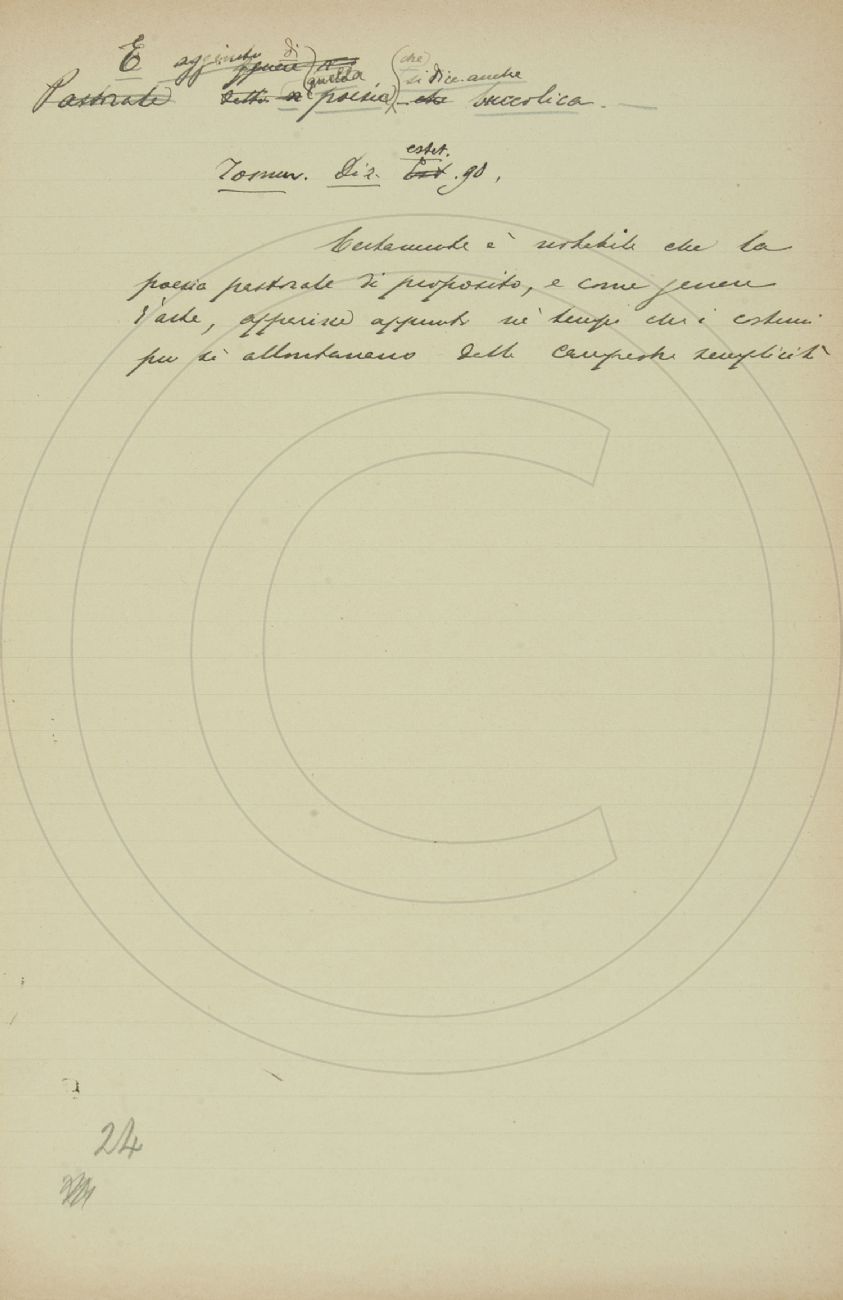 E aggiunto di genere
quella (che) si dice anche
Pastorale detto di poesia che buccolica.
estet.
Tomm. Diz. Est. 90.
Certamente è notabile che la
poesia pastorale di proposito, e come genere
d'arte, apparisce appunto ne' tempi che i costumi
più si allontanano dalla campestre semplicità
24